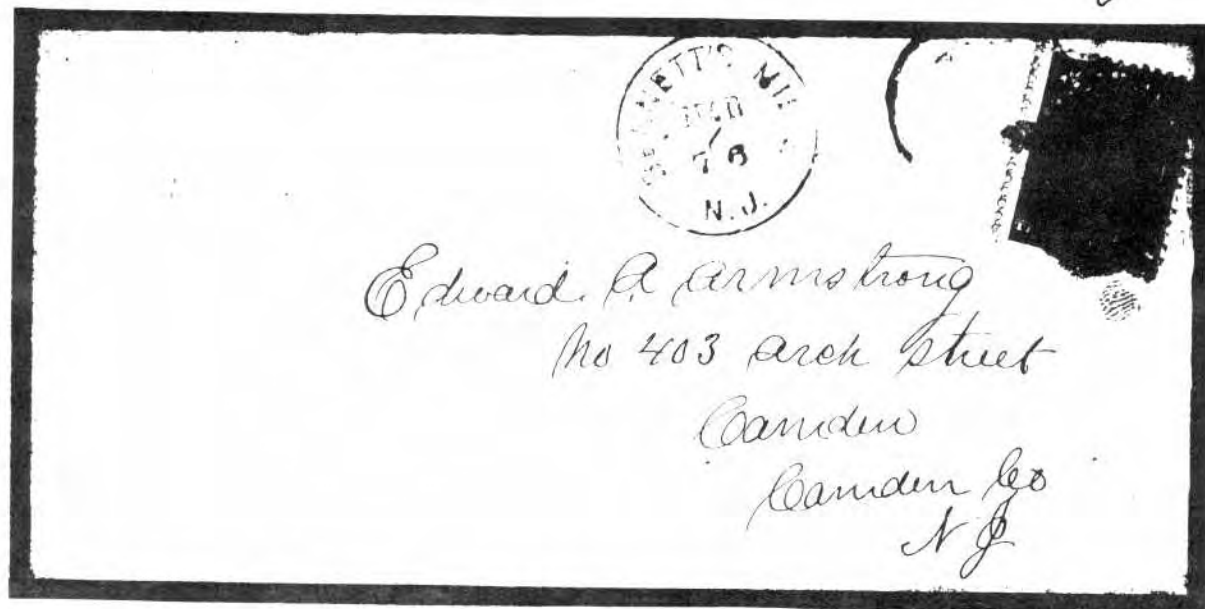 BENNETT'S MILLS
N.J.
Edward. A Armstrong
No 403 Arch Street
Camden
Camden Co
N J